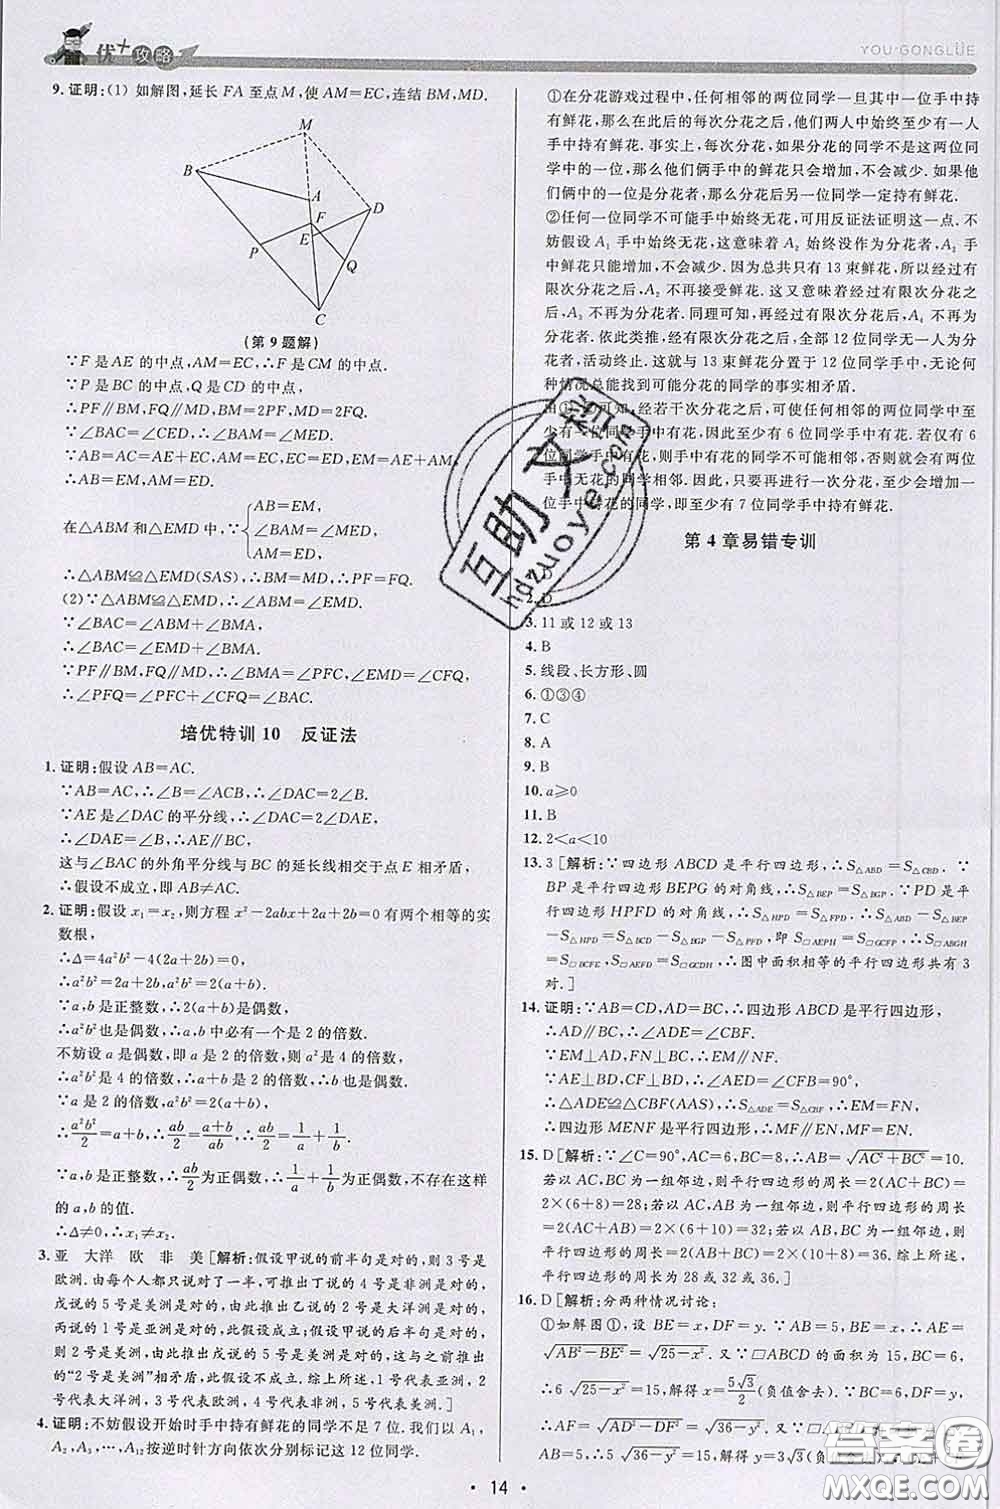 优+攻略
YOU·GONGLÜE
9. 证明:(1) 如解图,延长 FA 至点 M,使 AM=EC,连结 BM,MD.
M
B
A
D
F
E
P
Q
C
(第 9 题解)
∵F 是 AE 的中点,AM=EC,∴F 是 CM 的中点,
∵P 是 BC 的中点,Q 是 CD 的中点,
∴PF∥BM,FQ∥MD,BM=2PF,MD=2FQ.
∵∠BAC=∠CED,∴∠BAM=∠MED.
∵AB+AC=CE+AE,AM=EC,EC=ED,EM=AE+AM,
∴AB=EM,AM=ED.
在△ABM 和△EMD 中,∵
AB=EM,
∠BAM=∠MED,
AM=ED,
∴△ABM≌△EMD(SAS),∴BM=MD,∴PF=FQ.
(2)∵△ABM≌△EMD,∴∠ABM=∠EMD.
∵∠BAC=∠ABM+∠BMA,
∴∠BAC=∠EMD+∠BMA.
∵PF∥BM,FQ∥MD,∴∠BMA=∠PFC,∠EMD=∠CFQ,
∴∠PFQ=∠PFC+∠CFQ=∠BAC.
培优特训 10 反证法
1. 证明:假设 AB=AC.
∵AB=AC,∴∠ABC=∠ACB.
∵AE是∠DAC 的平分线,∴∠DAC=2∠DAE,
∴∠DAE=∠ABC,∴AE∥BC,
这与∠BAC 的外角平分线与 BC 的延长线相交于点 E 相矛盾,
∴假设不成立,即 AB≠AC.
2. 证明:假设 x₁=x₂,则方程 x²-2abx+2a+2b=0 有两个相等的实
数根,
∴Δ=4a²b²-4(2a+2b)=0,
∴a²b²=2a+2b,∴a²b²=2(a+b).
∵a,b 是正整数,∴2(a+b)是偶数,
∴a²b²也是偶数,∴a,b 中必有一个是 2 的倍数.
不妨设 a 是偶数,即 a 是 2 的倍数,∴a²是 4 的倍数,
∴a²b²是 4 的倍数,∴a²b²=2(a+b).
∵a,b 是正整数,∴a²b²=2(a+b),
∴a²b²/2=a+b,∴ab/2=(a+b)/ab,∴ab/2=1/a+1/b.
∵a,b 是正整数,∴ab/2为正整数,∴1/a+1/b为正整数,∴不存在这样
的 a,b 的值.
∴Δ≠0,∴x₁≠x₂.
3. 亚 大洋 欧 非 美 [解析:假设甲说的前半句是对的,则 3 号是
欧洲. 由每个人都只对了一半,可推出丁说的 4 号是非洲是对的,
戊说的 5 号是美洲是对的,由此推出乙说的 2 号是大洋洲是对的,
丙说的 1 号是亚洲是对的,符合题意;假设甲说的后半句是对的,
则 2 号是美洲,由此推出戊说的 5 号是美洲是对的,这与已推出的
“2 号是美洲”相矛盾,所以假设不成立. 综上所述,1 号代表亚洲,
2 号代表大洋洲,3 号代表欧洲,4 号代表非洲,5 号代表美洲.]
4. 证明:不妨假设开始时手中持有鲜花的同学不足 7 位. 我们以 A₁,
A₂,A₃,…,A₁₂按逆时针方向依次分别标记这 12 位同学.
①在分花游戏过程中,任何相邻的两位同学一旦其中一位手中持
有鲜花,那么在此后的每次分花之后,他们两人中始终至少有一人
手中持有鲜花. 事实上,每次分花,如果分花的同学不是这两位同
学中的一位,那么他们俩手中的鲜花只会增加,不会减少. 如果他
们俩中的一位是分花者,那么分花后另一位同学一定持有鲜花.
②任何一位同学不可能手中始终无花,可用反证法证明这一点. 不
妨假设 A₁ 手中始终无花,这意味着 A₂ 始终没作为分花者,A₂ 手
中鲜花只能增加,不会减少. 因为总共只有 13 束鲜花,所以有限次
分花之后,A₂ 不再接受鲜花. 这又意味着经过有限次分花之后,A₃
不再为分花者. 同理可知,再经过有限次分花之后,A₃ 不再持有鲜
花. 依此类推,经有限次分花之后,全部 12 位同学无一人为分
花者,活动终止. 这与 13 束鲜花分置于 12 位同学手中,无论何
种情况总能找到可分花的同学的事实相矛盾.
由①②可知,经若干次分花之后,可使任何相邻的两位同学中至
少有一位同学手中有花,因此至少有 6 位同学手中有花. 若仅有 6
位同学手中有花,则手中有花的同学不可能相邻,否则会有两位
手中无花的同学相邻,矛盾. 因此,只要再进行一次分花,有花同学
手中无花的同学,即至少有 7 位同学手中持有鲜花.
第 4 章易错专训
2. D
3. 11 或 12 或 13
4. B
5. 线段、长方形、圆
6. ①③④
7. C
8. A
9. B
10. a≥0
11. B
12. 2<a<10
13. 3 [解析:∵四边形 ABCD 是平行四边形,∴S△ABD=S△CBD. ∵
BP 是平行四边形 BEPG 的对角线,∴S△BEP=S△BGP. ∵PD 是平
行四边形 HPFD 的对角线,∴S△HPD=S△FPD. ∴S△ABD-S△BEP
-S△HPD=S△BCD-S△BGP-S△PFD,即S□AEPH=S□GCFP,∴S□ABGH
=S□BCFE,S□AEFD=S□HGCD,∴图中面积相等的平行四边形共有 3
对.]
14. 证明:∵AB=CD,AD=BC,∴四边形 ABCD 是平行四边形,
∴AD∥BC,∴∠ADE=∠CBF.
∵EM⊥AD,FN⊥BC,∴EM∥FN.
∵AE⊥BD,CF⊥BD,∴∠AED=∠CFB=90°,
∴△ADE≌△CBF(AAS),∴S△ADE=S△CBF,∴EM=FN,
∴四边形 MENF 是平行四边形,∴MF∥EN,MF=EN.
15. D [解析:∵∠C=90°,AC=6,BC=8,∴AB=√(AC²+BC²)=10.
若以 AC,BC 为一组邻边,则平行四边形的周长=2(AC+BC)
=2×(6+8)=28;若以 AC,AB 为一组邻边,则平行四边形的周长=
2(AC+AB)=2×(6+10)=32;若以 BC,AB 为一组邻边,则
平行四边形的周长=2(BC+AB)=2×(8+10)=36. 综上所述,
平行四边形的周长为 28 或 32 或 36.]
16. D [解析:分两种情况讨论:
①如解图①,设 BE=x,DF=y. ∵AB=5,BE=x,∴AE=
√(AB²-BE²)=√(25-x²). 又∵□ABCD 的面积为 15,BC=6,
∴6√(25-x²)=15,解得 x=5√3/2(负值舍去). ∵AD=6,DF=y,
∴AF=√(AD²-DF²)=√(36-y²).
AB=5,∴5√(36-y²)=15,解得 y=3√3(负值
互助文档
hdzuoye.com
答案圈
MXQE.COM
· 14 ·